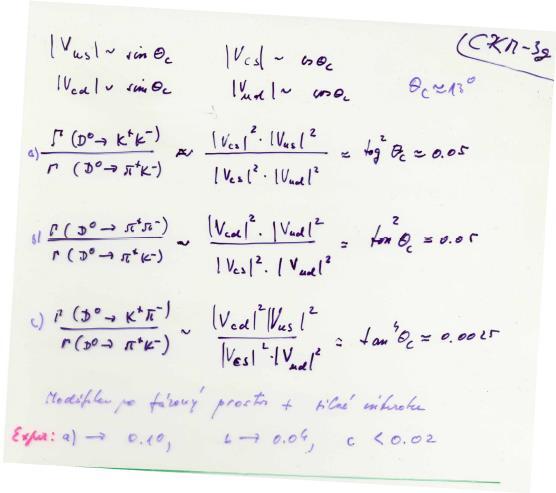 (CKM-3g
|V_us| ~ sin θ_c |V_cs| ~ cos θ_c
|V_cd| ~ sin θ_c |V_ud| ~ cos θ_c θ_c ≈ 13°
a) Γ(D⁰ → K⁺K⁻) / Γ(D⁰ → π⁺K⁻) ≈ |V_cs|² · |V_us|² / |V_cs|² · |V_ud|² ≈ tg² θ_c ≈ 0.05
b) Γ(D⁰ → π⁺π⁻) / Γ(D⁰ → π⁺K⁻) ~ |V_cd|² · |V_ud|² / |V_cs|² · |V_ud|² ≈ tan² θ_c ≈ 0.05
c) Γ(D⁰ → K⁺π⁻) / Γ(D⁰ → π⁺K⁻) ~ |V_cd|² |V_us|² / |V_cs|² · |V_ud|² ≈ tan⁴ θ_c ≈ 0.0025
fázový prostor + silné
Exper: a) → 0.10, b → 0.04, c < 0.02